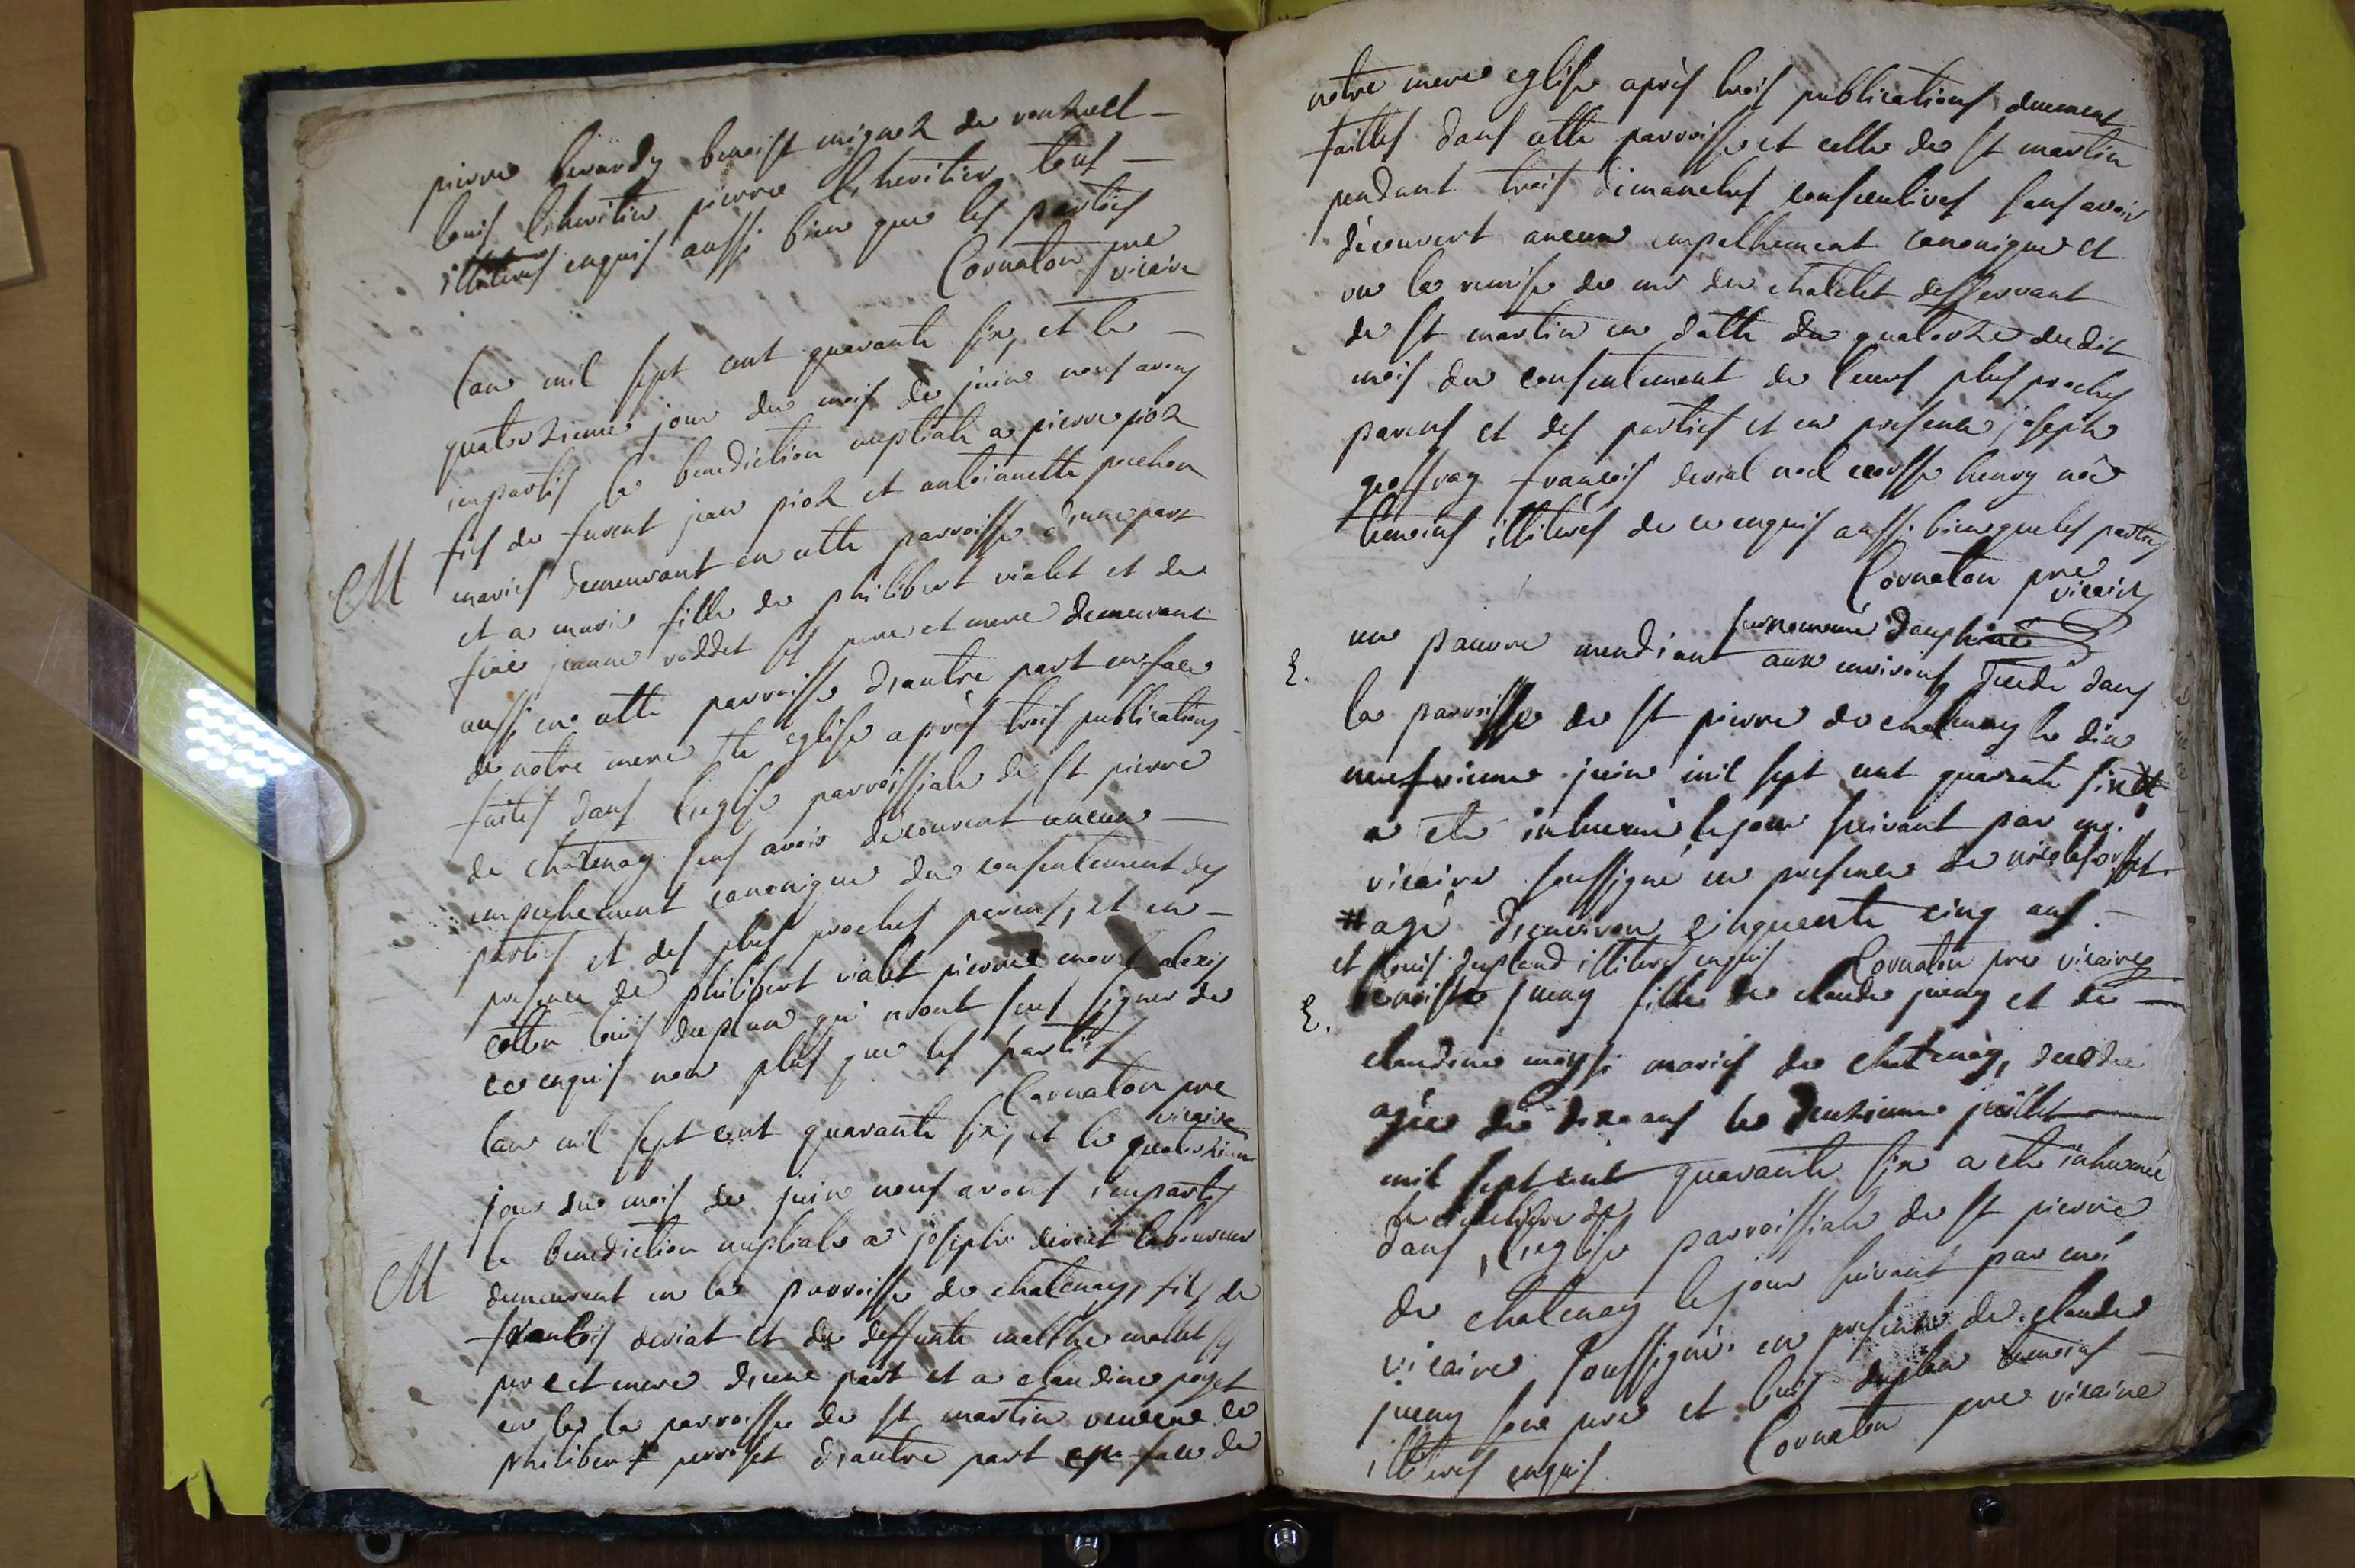 pierre berardy benoist mignot de
louis l'heritier pierre l'heritier tous
illiterés enquis aussi bien que les parties
Cornaton pre
vicaire
lan mil sept cent quarante six, et le
quatorzieme jour du mois de juin nous avons
impartis la benediction nuptiale a pierre pioz
fils de furent jean pioz et antoinette pochon
M
mariés demeurant en cette parroisse d'une part
et a marie fille de philibert violet et de
füe jeanne roddet ses pere et mere demeurant
aussi en cette parroisse d'autre part en face
de notre mere ste eglise après trois publications
faites dans l'eglise parroissiale de st pierre
de chatenay sans avoir decouvert aucun
empechement canonique du consentement des
parties et des plus proches parens, et en
presence de philibert violet pierre morel alexis
louis duplan qui n'ont sçus signer de
ce enquis non plus que les parties
Cornaton pre
vicaire
lan mil sept cent quarante six, et le quatorzieme
jour du mois de juin nous avons impartis
la benediction nuptiale a joseph deviat laboureur
M
demeurant en la parroisse de chatenay, fils de
francois deviat et de deffunte
pere et mere d'une part et a claudine poget
en la la parroisse de st martin de
philibert perroset d'autre part en face de
notre mere eglise après trois publications duement
faittes dans cette parroisse et celle de st martin
pendant trois dimanches consecutives sans avoir
découvert aucun empeschement canonique et
vu la remise de mr du chatelet desservant
de st martin en datte du quatorze dudit
mois du consentement de leurs plus proches
parens et des parties et en presence joseph
geoffray francois devial noel henry
temoins illiterés de ce enquis aussi bien que les parties
Cornaton pre
vicaire
surnommé dauphiné
un pauvre mendiant aux environs decedé dans
E.
la parroisse de st pierre de chatenay le dix
neufvieme juin mil sept cent quarante six et
a eté inhumé le jour suivant par moi
vicaire soussigné en presence de
# agé d'environ cinquante cinq ans.
et louis dupland illiterés enquis Cornaton pre vicaire
E.
benoiste jueny fille de claude jueny et de
claudine mariés de chatenay, decedée
agée de dixe ans le deuxieme juillet
mil sept cent quarante six a eté inhumée
le cimetiere de
dans l'eglise parroissiale de st pierre
de chatenay le jour suivant par moi
vicaire soussigné en presence de claude
jueny son pere et louis duplan temoins
illiterés enquis Cornaton pre vicaire